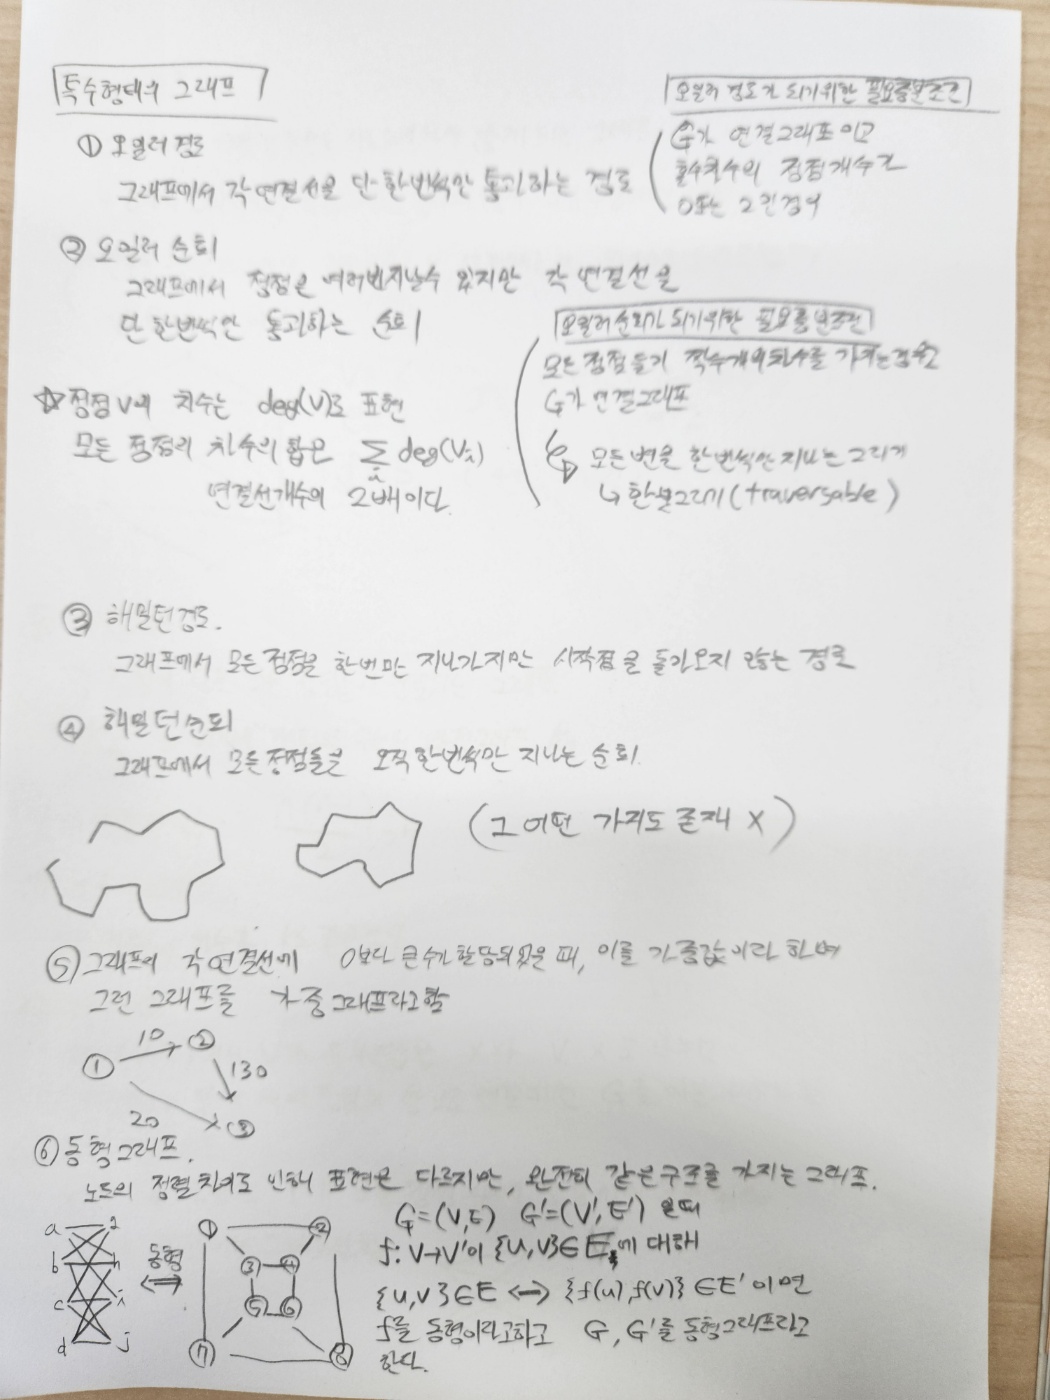 특수형태의 그래프
① 오일러 경로
그래프에서 각 연결선을 단 한번씩만 통과하는 경로
오일러 경로가 되기위한 필요충분조건
G가 연결그래프이고
홀수차수의 정점개수가
0또는 2인경우
② 오일러 순회
그래프에서 정점은 여러번지날수 있지만 각 연결선을
단 한번씩만 통과하는 순회
오일러순회가 되기위한 필요충분조건
모든 정점들기 짝수개의차수를 가지는경우고
G가 연결그래프
모든변을 한번씩만 지나는 그리기
↳ 한붓그리기 (traversable)
☆ 정점 V에 차수는 deg(V)로 표현
모든 정점의 차수의 합은 ∑ deg(Vi)
i
연결선개수의 2배이다.
③ 해밀턴경로.
그래프에서 모든정점을 한번만 지나가지만 시작점을 돌아오지 않는 경로
④ 해밀턴순회
그래프에서 모든정점들을 오직한번씩만 지나는 순회.
(그 어떤 가지도 존재 X)
⑤ 그래프의 각연결선에 0보다 큰수가 할당되있을 때, 이를 가중값이라 하며
그런 그래프를 가중그래프라고함
10 ②
① 130
20 ③
⑥ 동형그래프.
노드의 정렬 차이로 인해 표현은 다르지만, 완전히 같은구조를 가지는 그래프.
G=(V,E) G'=(V',E') 일때
f: V→V'이 {u,v}∈E에 대해
{u,v}∈E ↔ {f(u),f(v)}∈E' 이면
f를 동형이라고하고 G, G'를 동형그래프라고
한다.
a g
b h
c i
d j
동형
① ②
③ ④
⑤ ⑥
⑦ ⑧